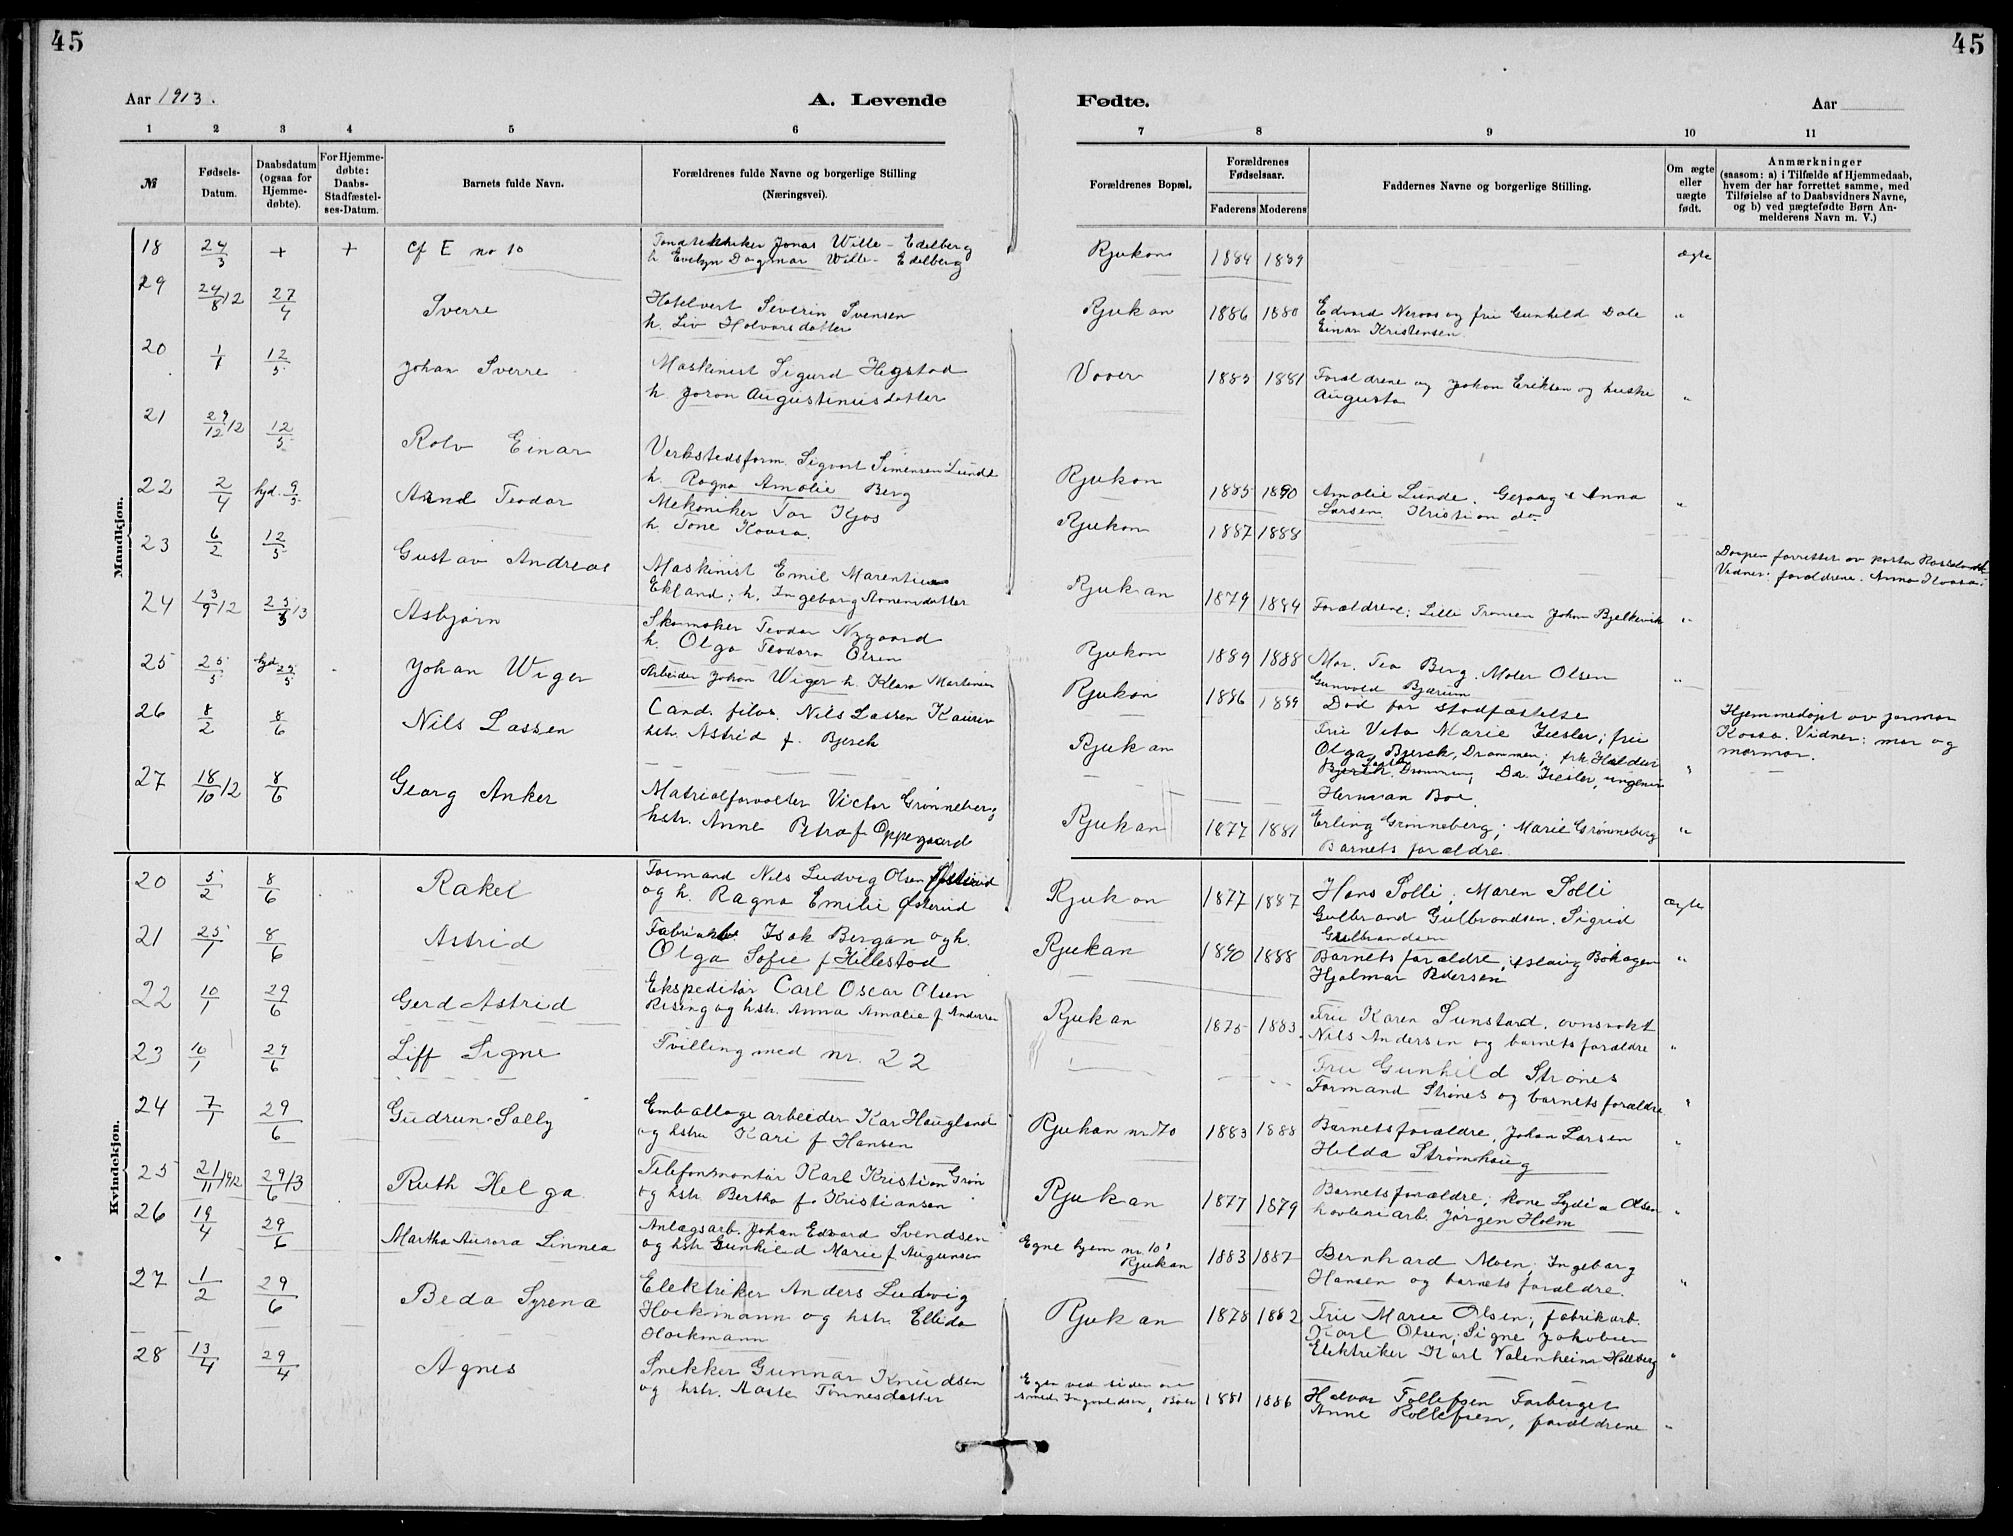 45
45
Aar 1913.
A. Levende
Fødte.
Aar
1 2 3 4 5 6
7 8 9 10 11
№
Fødsels-
Datum.
Daabsdatum
(ogsaa for
Hjemme-
døbte).
For Hjemme-
døbte:
Daabs-
Stadfæstel-
ses-Datum.
Barnets fulde Navn.
Forældrenes fulde Navne og borgerlige Stilling
(Næringsvei).
Forældrenes Bopæl.
Forældrenes
Fødselsaar.
Faderens
Moderens
Faddernes Navne og borgerlige Stilling.
Om ægte
eller
uægte
født.
Anmærkninger
(saasom: a) i Tilfælde af Hjemmedaab,
hvem der har forrettet samme, med
Tilføielse af to Daabsvidners Navne,
og b) ved uægtefødte Børn An-
melderens Navn m. V.)
Mandkjøn.
18 24/3 + + cf E no 10
Jonas Wille-Edelberg
h. Evelyn Dagmar Wille-Edelberg
Rjukan 1884 1889 ægte
29 24/8 12 27/4 Sverre
Hotelvert Severin Svensen
h. Liv Halvorsdatter
Rjukan 1886 1880
Edvard Neraas og fru Gunhild Dale
Einar Kristensen "
20 1/1 12/5 Johan Sverre
Maskinist Sigurd Hegstad
h. Joron Augustinusdatter
Vaaer 1883 1881
Forældrene og Johan Eriksen og hustru
Augusta "
21 29/12 12 12/5 Rolv Einar
Verkstedsform. Sigvart Simensen Lunde
h. Ragna Amalie Berg
Rjukan 1885 1890
Amalie Lunde. Georg & Anna
Larsen. Kristian do. "
22 2/4 hjd. 9/5 Arne Teodor
Mekaniker Tor Kjos
h. Tone Kaasa.
Rjukan 1887 1888
Daapen forrettet av pastor
Vidner: forældrene. Anna
23 6/2 12/5 Gustav Andreas
Maskinist Emil Marentius
Ekland; h. Ingeborg
Rjukan 1879 1884
Forældrene; Lille Tronsen Johan Bjelkevik "
24 13/9 12 25/5 13 Asbjørn
Skomaker Teodor Nygaard
h. Olga Teodora Olsen
Rjukan 1889 1888
Mor. Tea Berg. Maler Olsen
Gunvald Bjærum "
25 25/5 hjd 25/5 Johan Wiger
Arbeider Johan Wiger h. Klara Martinsen
Rjukan 1886 1889
Død før stadfæstelse
Hjemmedøpt av jormor
Kaasa. Vidner: mor og
mormor.
26 8/2 8/6 Nils Lassen
Cand. filos. Nils Lassen Kaurin
hstr. Astrid f. Bjerck
Rjukan
Fru Veta Marie Kiesler; fru
Olga Bjerck, Drammen; frk Haldur
Drammen, Dr. Kiesler, ingeniør
Herman Boe. "
27 18/10 12 8/6 Georg Anker
Matrialforvalter Victor Grønneberg
hstr. Anne Petra f Oppegaard
Rjukan 1877 1881
Erling Grønneberg; Marie Grønneberg
Barnets forældre "
Kvindekjøn.
20 5/2 8/6 Rakel
Formand Nils Ludvig Olsen Østerud
og h. Ragna Emilie Østerud
Rjukan 1877 1887
Hans Solli; Maren Solli
Gulbrand Gulbrandsen. Sigrid
Gulbrandsen ægte
21 25/1 8/6 Astrid
Isak Bergan og h.
Olga Sofie f Hillestad
Rjukan 1890 1888
Barnets forældre; Aslaug Bokagen
Hjalmar Pedersen "
22 10/1 29/6 Gerd Astrid
Ekspeditør Carl Oscar Olsen
Rising og hstr. Anna Amalie f Andersen
Rjukan 1875 1883
Fru Karen Sunstard. ovnsvakt
Nils Andersen og barnets forældre "
23 10/1 29/6 Liff Signe
Tvilling med nr. 22
Fru Gunhild Strønes
Formand Strønes og barnets forældre. "
24 7/1 29/6 Gudrun Solly
Emballagearbeider Kar Haugland
og hstru Kari f Hansen
Rjukan nr. 70 1883 1888
Barnets forældre, Johan Larsen
Helda Strømhaug "
25 21/11 1912 29/6 13 Ruth Helga
Telefonmontør Karl Kristian Grøn
og hstr. Bertha f. Kristiansen
Rjukan 1877 1879
Barnets forældre; kone Lydia Olsen
arb. Jørgen Holm "
26 19/4 29/6 Martha Aurora Linnea
Anlægsarb. Johan Edvard Svendsen
og hstr Gunhild Marie f Augunsen
Egne hjem nr. 101
Rjukan 1883 1887
Bernhard Moen; Ingeborg
Hansen og barnets forældre. "
27 1/2 29/6 Beda Syrena
Elektriker Anders Ludvig
Hockmann og hstr. Ellida
Hockmann
Rjukan 1878 1882
Fru Marie Olsen; fabrikarb.
Karl Olsen; Signe Jakobsen
Elektriker Karl Valenheim Hallberg "
28 13/4 29/4 Agnes
Snekker Gunnar Knudsen
og hstr. Aaste Tønnesdatter
Egen ved siden av
smed Ingvaldsen, Bøen 1881 1886
Halvor Tollefsen Farberget
Anne Rollefsen, forældrene "